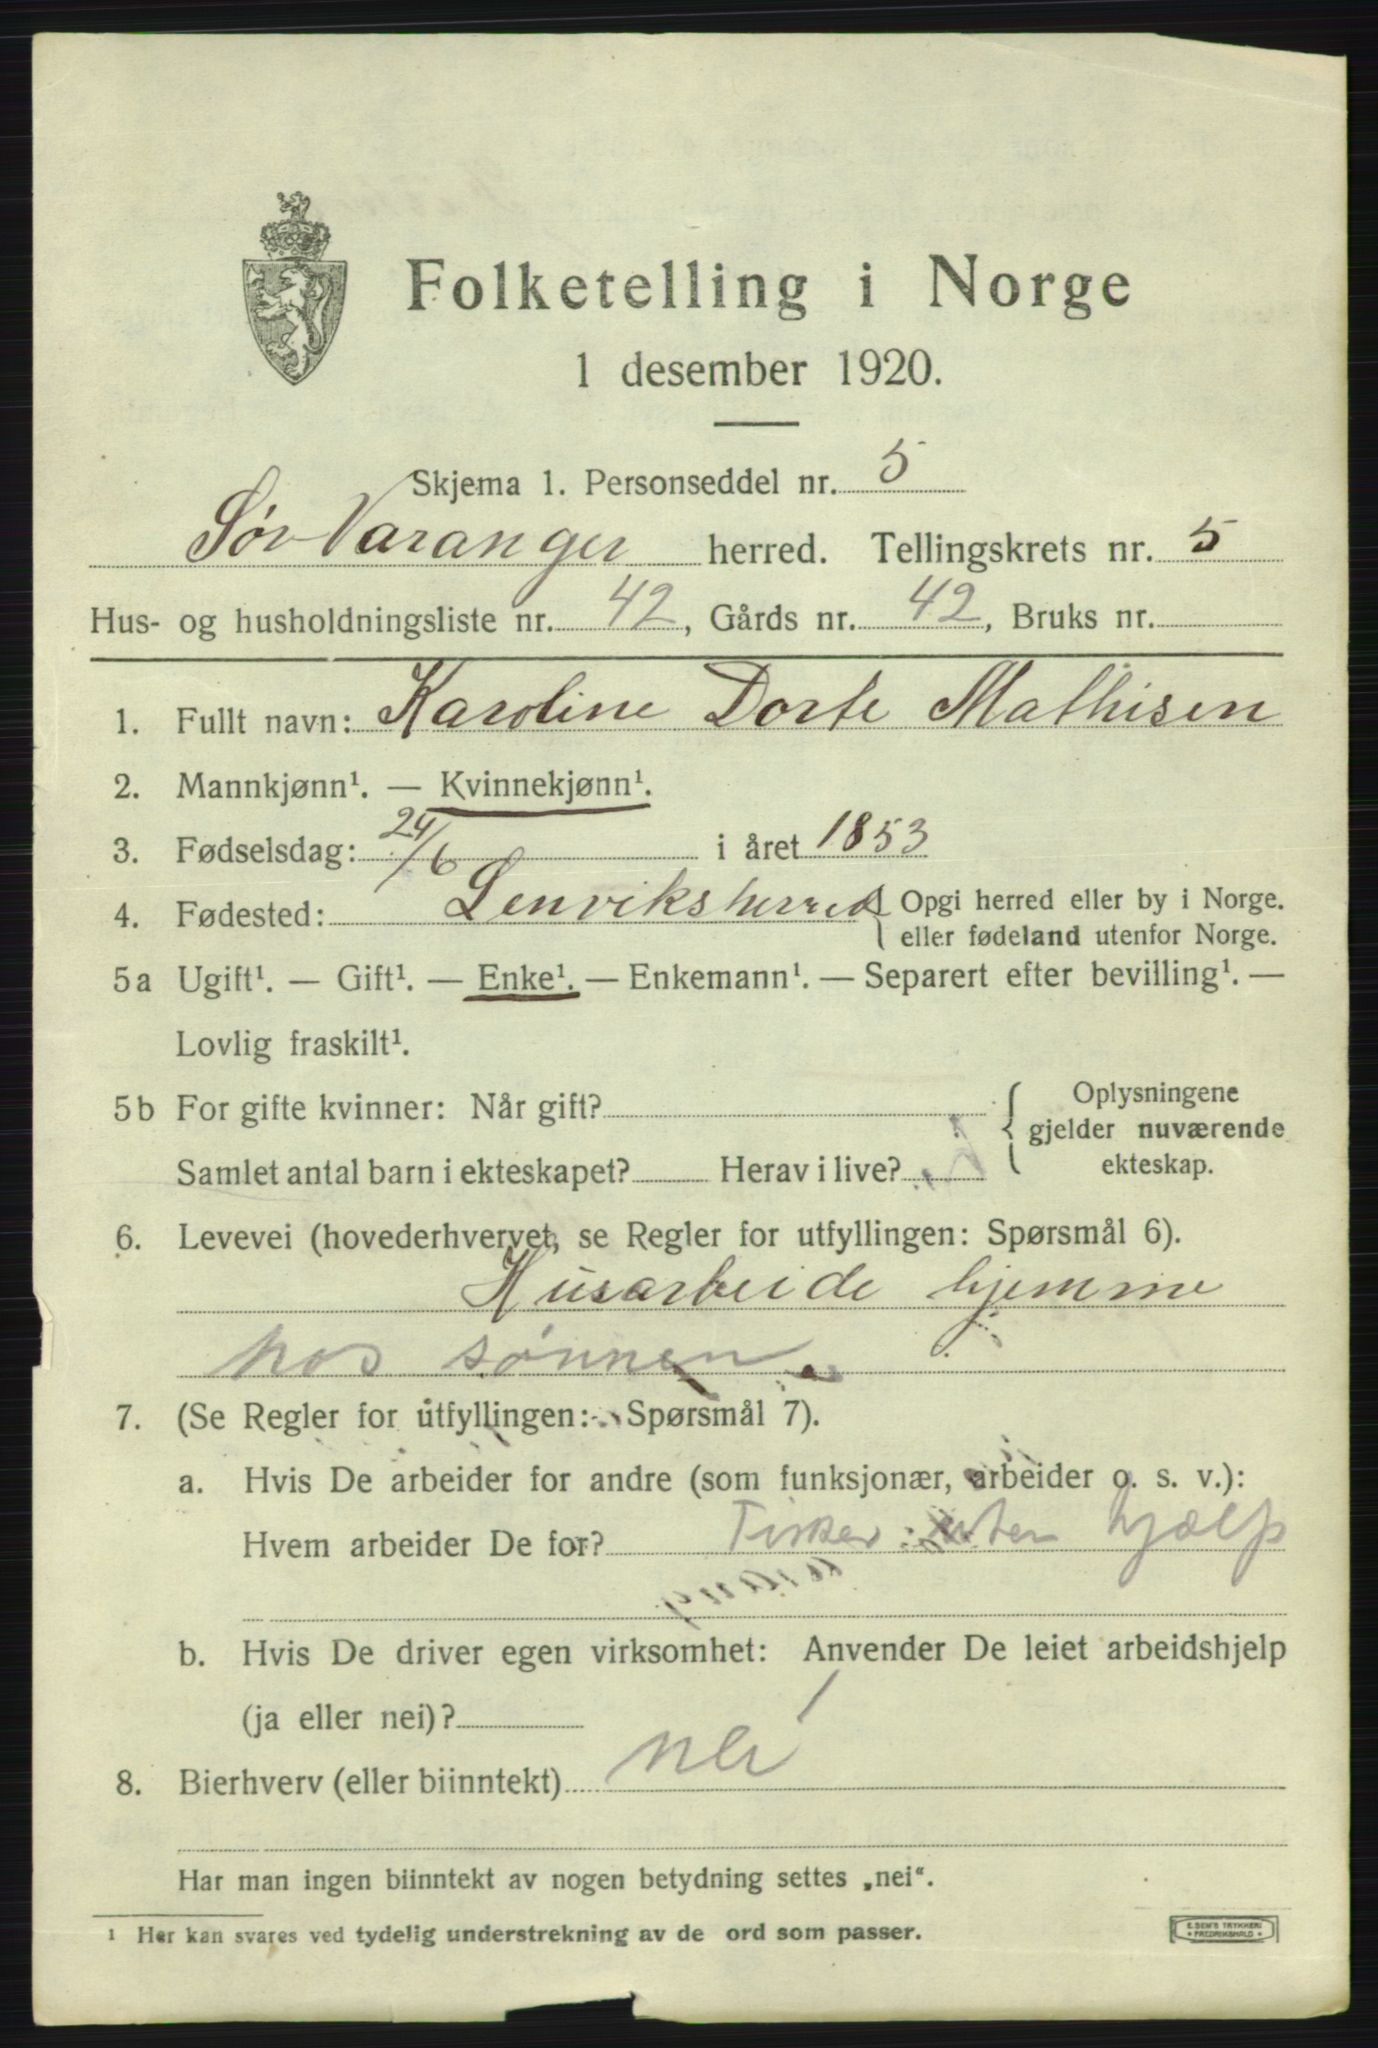 Folketelling i Norge
1 desember 1920.
Skjema 1. Personseddel nr. 5
Sør Varanger herred. Tellingskrets nr. 5
Hus- og husholdningsliste nr. 42, Gårds nr. 42, Bruks nr.
1. Fullt navn: Karoline Dorte Mathisen
2. Mannkjønn¹. — Kvinnekjønn¹.
3. Fødselsdag: 24/6 i året 1853
4. Fødested: Lenviksherred { Opgi herred eller by i Norge.
eller fødeland utenfor Norge.
5a Ugift¹. — Gift¹. — Enke¹. — Enkemann¹. — Separert efter bevilling¹. —
Lovlig fraskilt¹.
5b For gifte kvinner: Når gift?
Samlet antal barn i ekteskapet? Herav i live?
{ Oplysningene
gjelder nuværende
ekteskap.
6. Levevei (hovederhvervet, se Regler for utfyllingen: Spørsmål 6).
Husarbeide hjemme
hos sønnen
7. (Se Regler for utfyllingen: Spørsmål 7).
a. Hvis De arbeider for andre (som funksjonær, arbeider o. s. v.):
Hvem arbeider De for? Fisker uten hjælp
b. Hvis De driver egen virksomhet: Anvender De leiet arbeidshjelp
(ja eller nei)?
8. Bierhverv (eller biinntekt) nei
Har man ingen biinntekt av nogen betydning settes „nei“.
¹ Her kan svares ved tydelig understrekning av de ord som passer.
E. SEM'S TRYKKERI
• FREDRIKSHALD •